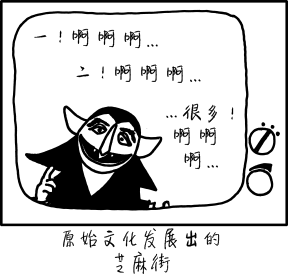 一！啊啊啊...
二！啊啊啊...
...很多！
啊啊
啊...
原始文化发展出的
芝麻街